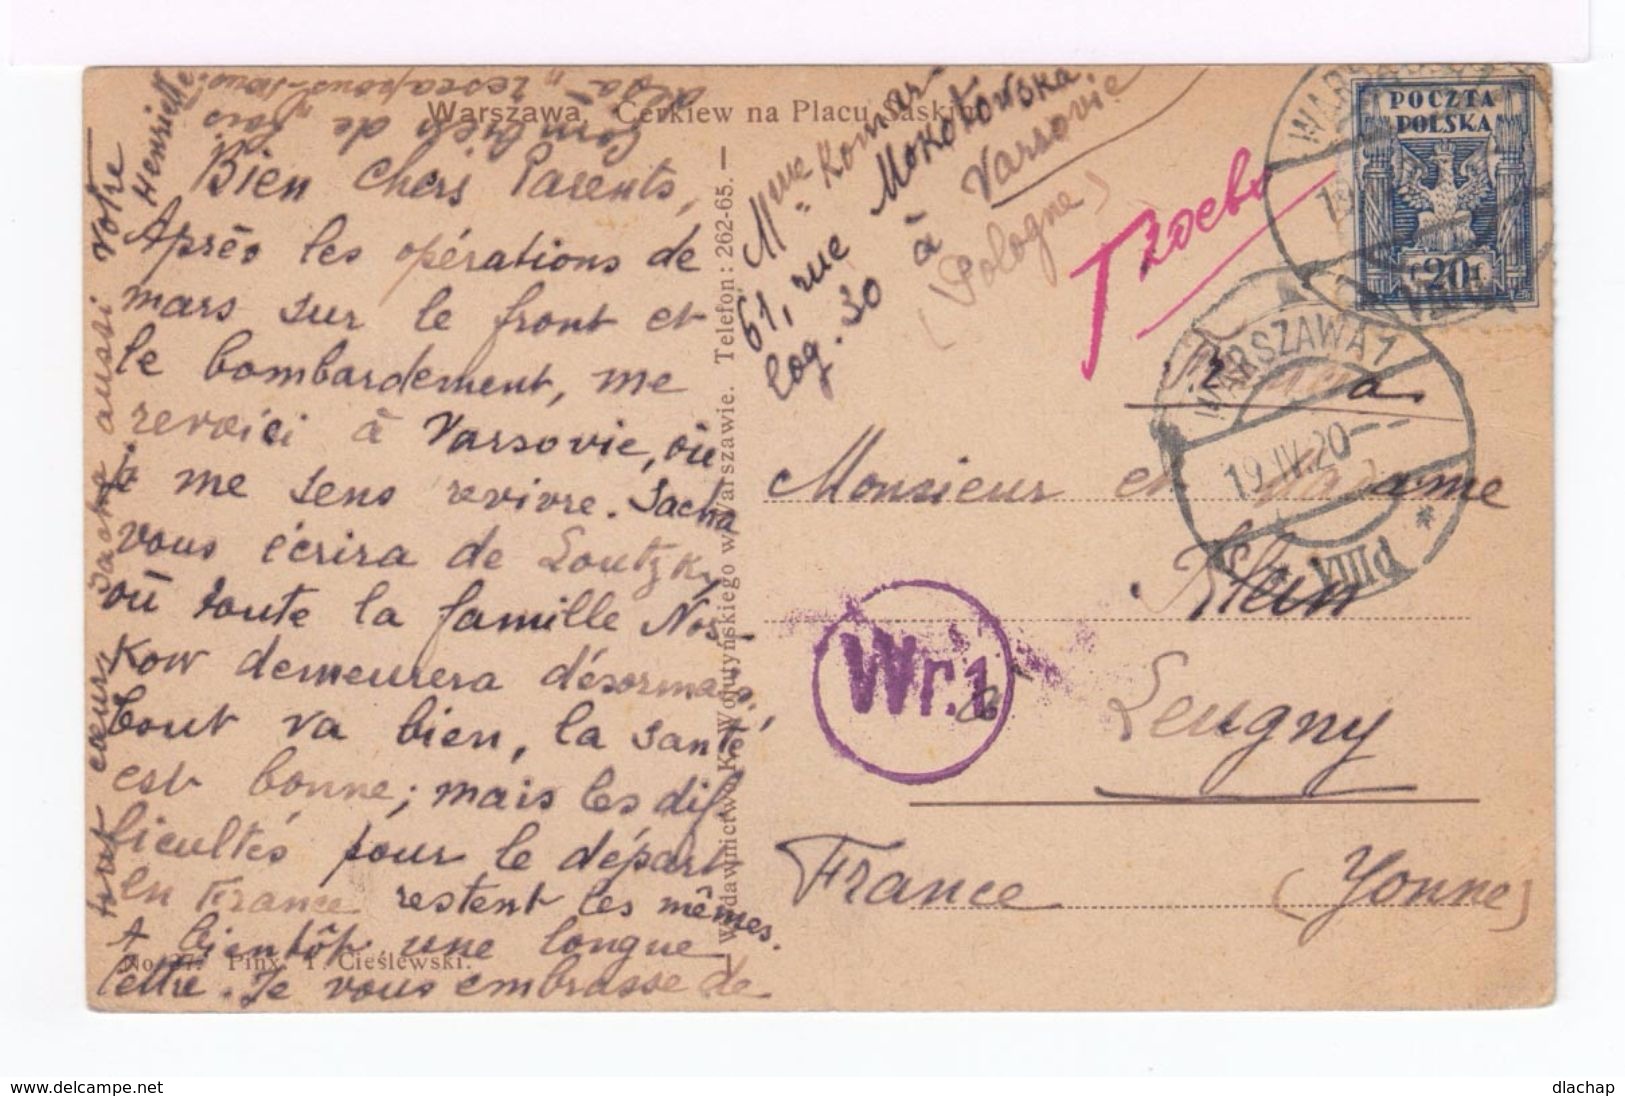 Warszawa. Cerkiew na Placu Saskim
Bien chers Parents,
Après les opérations de
mars sur le front et
le bombardement, me
revoici à Varsovie, où
je me sens revivre. Sacha
vous écrira de Loutzk,
où toute la famille Nos-
kow demeurera désormais.
Tout va bien, la santé
est bonne; mais les dif
ficultés pour le départ
en France restent les mêmes.
A bientôt une longue
lettre. Je vous embrasse de
tout cœur, Sacha aussi Votre
Henriette
Combien de "fois
No. 27. Pinx. T. Cieślewski.
Wydawnictwo K. Wojutyńskiego w Warszawie. Telefon: 262-65.
Mme Komsar
61, rue Mokotowska
log. 30 à Varsovie
(Pologne)
POCZTA
POLSKA
f. 20 f.
WARSZAWA 1
19.IV.20
Monsieur et Madame
Klein
Wr.1
à
Leugny
France (Yonne)
www.delcampe.net
dlachap